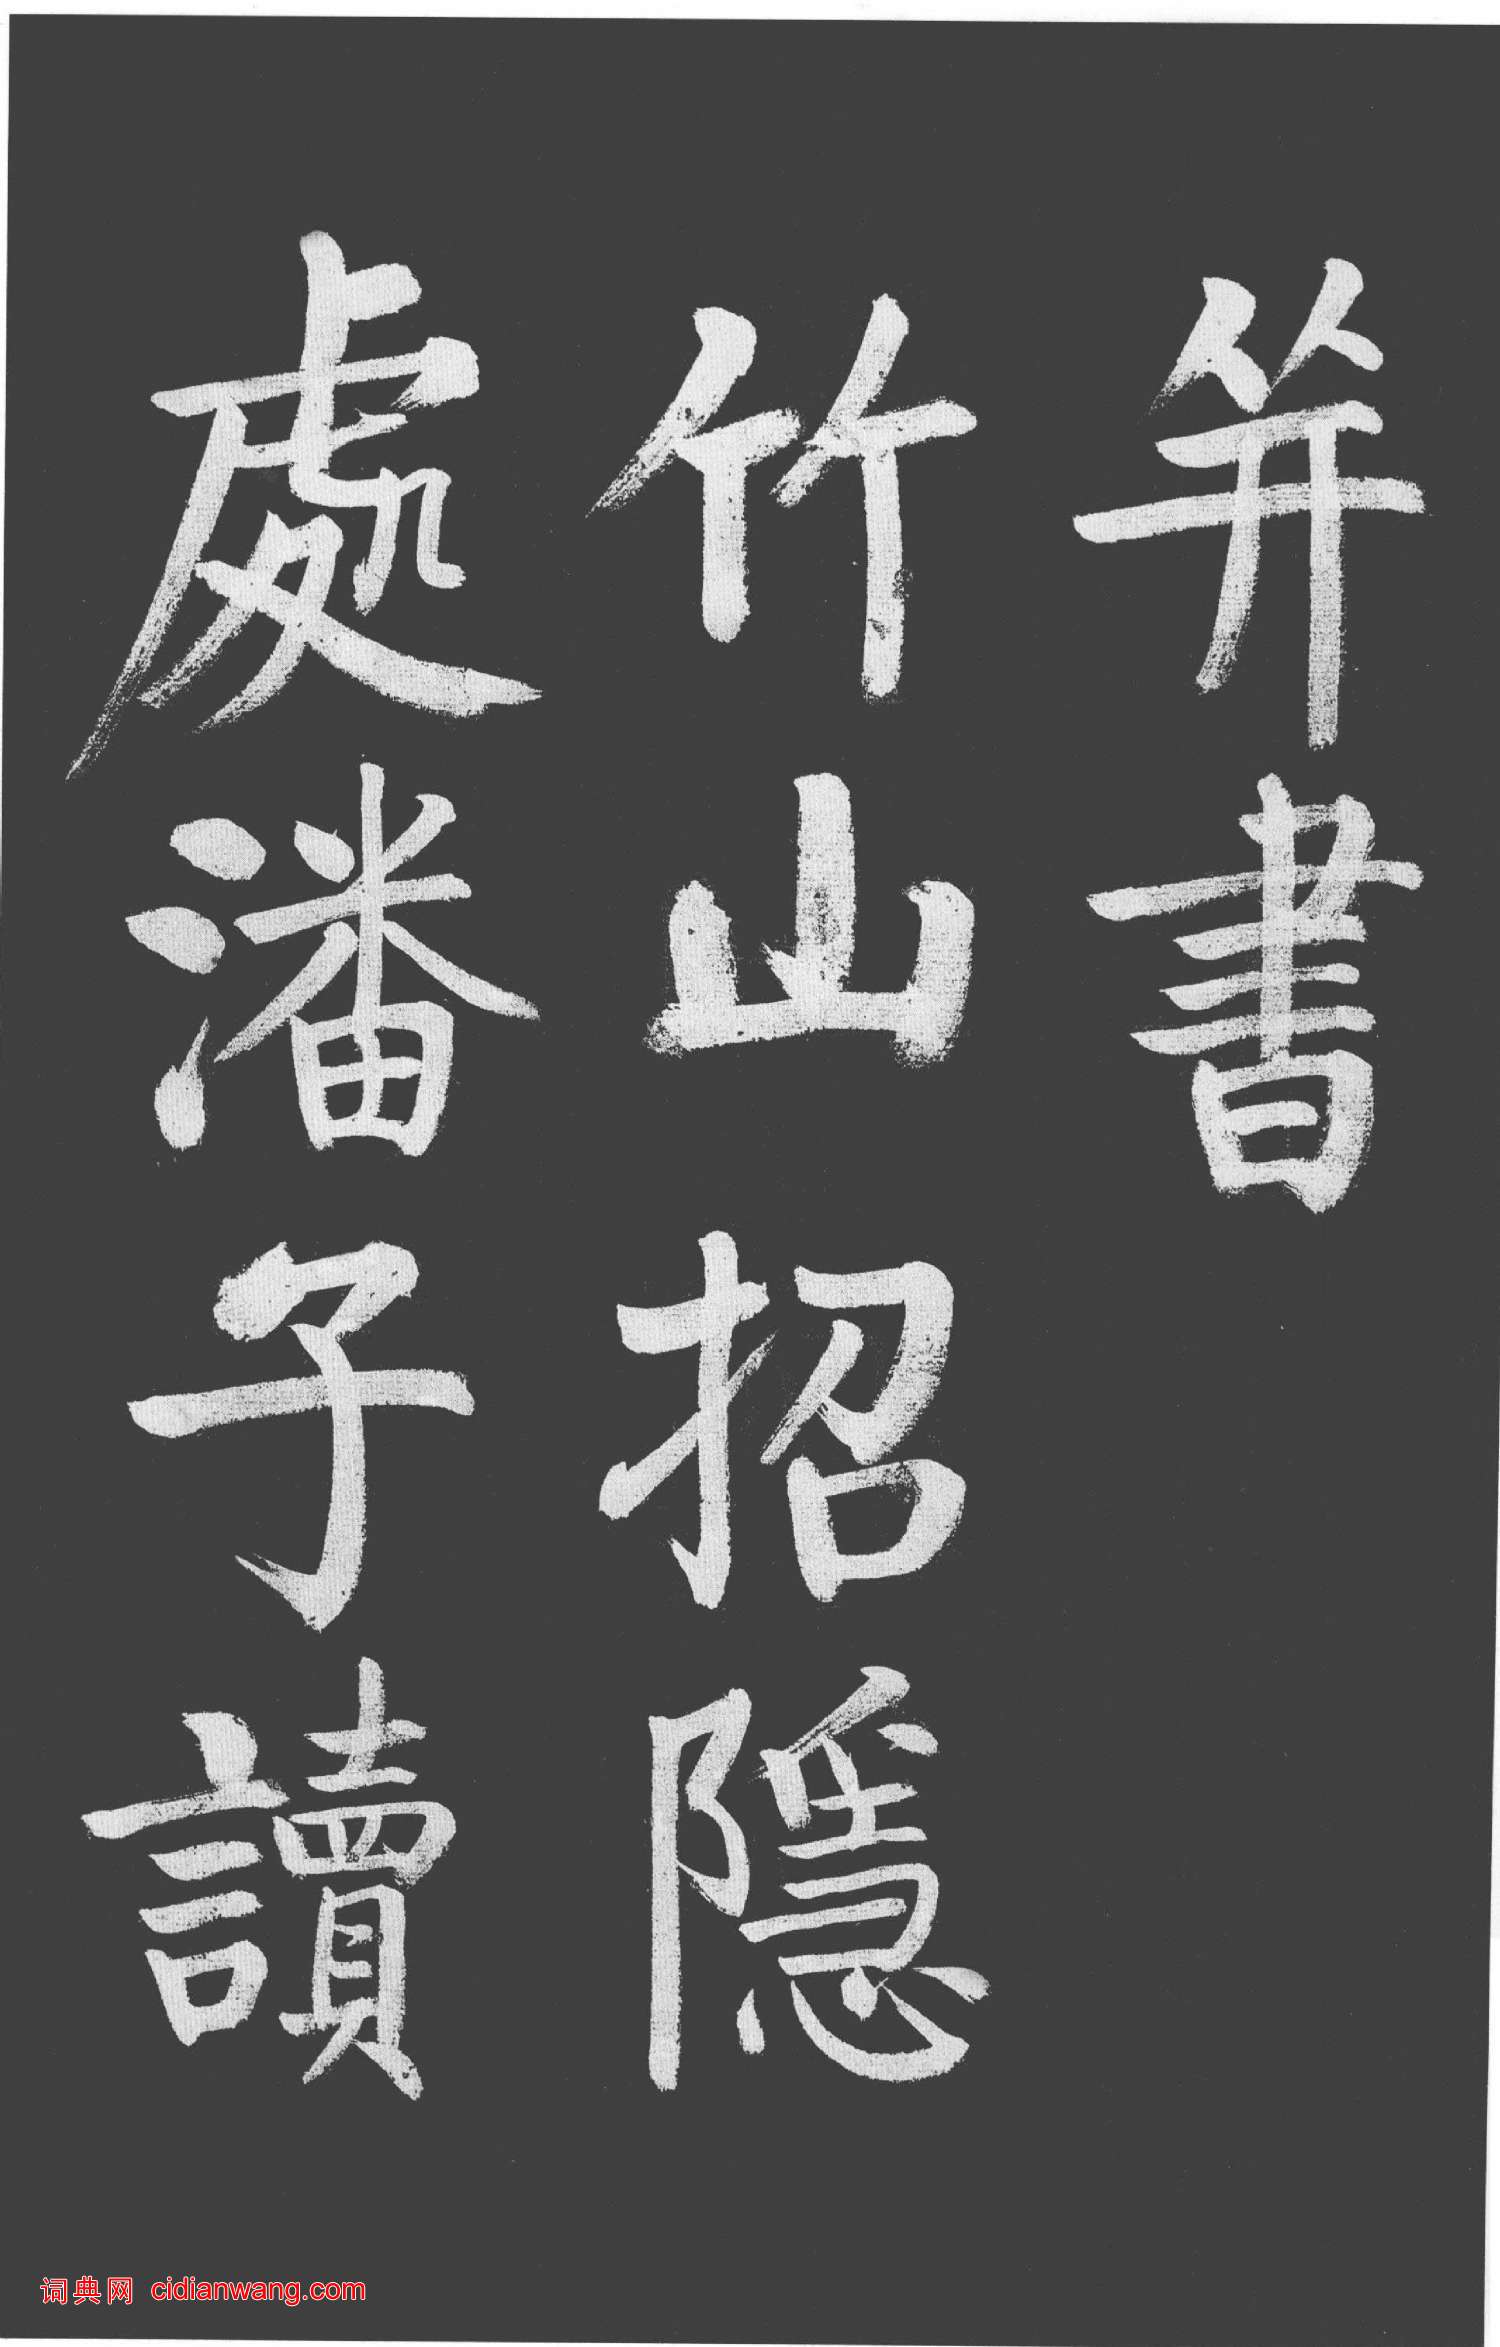 笄書
竹山招隱
處潘子讀
词典网 cidianwang.com